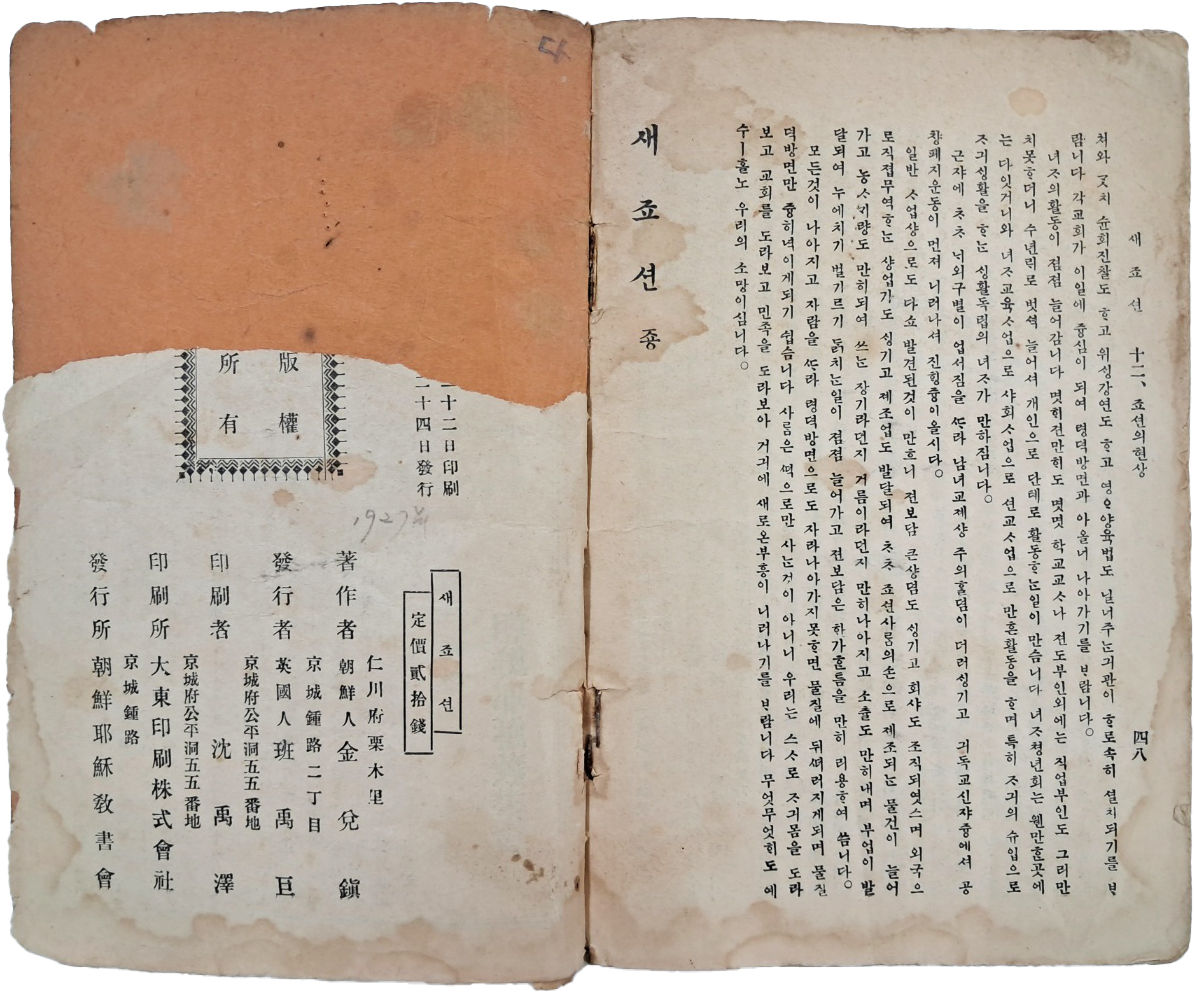 새 죠 션 十二、죠션의현상 四八
처와 ᄀᆞᆺ치 슌회진찰도 ᄒᆞ고 위싱강연도 ᄒᆞ고 영ᄋᆞ양육법도 닐너주ᄂᆞᆫ긔관이 ᄒᆞ로속히 셜치되기를 ᄇᆞ
람니다 각교회가 이일에 즁심이 되여 령덕방면과 아울너 나아가기를 ᄇᆞ람니다。
녀ᄌᆞ의활동이 졈졈 늘어감니다 몃ᄒᆡ젼만ᄒᆡ도 몃몃 학교교ᄉᆞ나 젼도부인외에는 직업부인도 그리만
치못ᄒᆞ더니 수년ᄅᆡ로 벗셕 늘어셔 개인으로 단톄로 활동ᄒᆞᄂᆞᆫ일이 만슴니다 녀ᄌᆞ쳥년회는 웬만ᄒᆞᆫ곳에
는 다잇거니와 녀ᄌᆞ교육ᄉᆞ업으로 샤회ᄉᆞ업으로 션교ᄉᆞ업으로 만흔활동을 ᄒᆞ며 특히 ᄌᆞ긔의 슈입으로
ᄌᆞ긔ᄉᆡᆼ활을 ᄒᆞᄂᆞᆫ ᄉᆡᆼ활독립의 녀ᄌᆞ가 만하짐니다。
근쟈에 ᄎᆞᄎᆞ ᄂᆡ외구별이 업서짐을 ᄯᅡ라 남녀교제샹 주의ᄒᆞᆯ뎜이 더러ᄉᆡᆼ기고 긔독교신쟈즁에셔 공
챵폐지운동이 먼져 니러나셔 진ᄒᆡᆼ즁이올시다。
일반 ᄉᆞ업샹으로도 다쇼 발견된것이 만흐니 젼보담 큰샹뎜도 ᄉᆡᆼ기고 회샤도 조직되엿스며 외국으
로직접무역ᄒᆞᄂᆞᆫ 샹업가도 ᄉᆡᆼ기고 제조업도 발달되여 ᄎᆞᄎᆞ 죠션사ᄅᆞᆷ의손으로 제조되ᄂᆞᆫ 물건이 늘어
가고 농ᄉᆞᄀᆡ량도 만히되여 쓰ᄂᆞᆫ 쟝기라던지 거름이라던지 만히나아지고 소츌도 만히내며 부업이 발
달되여 누에치기 벌기르기 ᄃᆞᆰ치ᄂᆞᆫ일이 졈졈 늘어가고 젼보담은 한가ᄒᆞᆫ틈을 만히 리용ᄒᆞ여 씀니다。
모든것이 나아지고 자람을 ᄯᅡ라 령덕방면으로도 자라나아가지못ᄒᆞ면 물질에 뒤ᄯᅥ러지게되며 물질
덕방면만 즁히녁이게되기 쉽슴니다 사ᄅᆞᆷ은 ᄯᅥᆨ으로만 사ᄂᆞᆫ것이 아니니 우리는 스ᄉᆞ로 ᄌᆞ긔몸을 도라
보고 교회를 도라보고 민족을 도라보아 거긔에 새로온부흥이 니러나기를 ᄇᆞ람니다 무엇무엇ᄒᆡ도 예
수ㅣ홀노 우리의 소망이심니다。
새 죠 션 죵
二十二日印刷
二十四日發行
1927
版權
所有
새 죠 션
定價貳拾錢
仁川府栗木里
著作者 朝鮮人 金兌鎭
京城鍾路二丁目
發行者 英國人 班禹巨
京城府公平洞五五番地
印刷者 沈禹澤
京城府公平洞五五番地
印刷所 大東印刷株式會社
京城鍾路
發行所 朝鮮耶穌敎書會